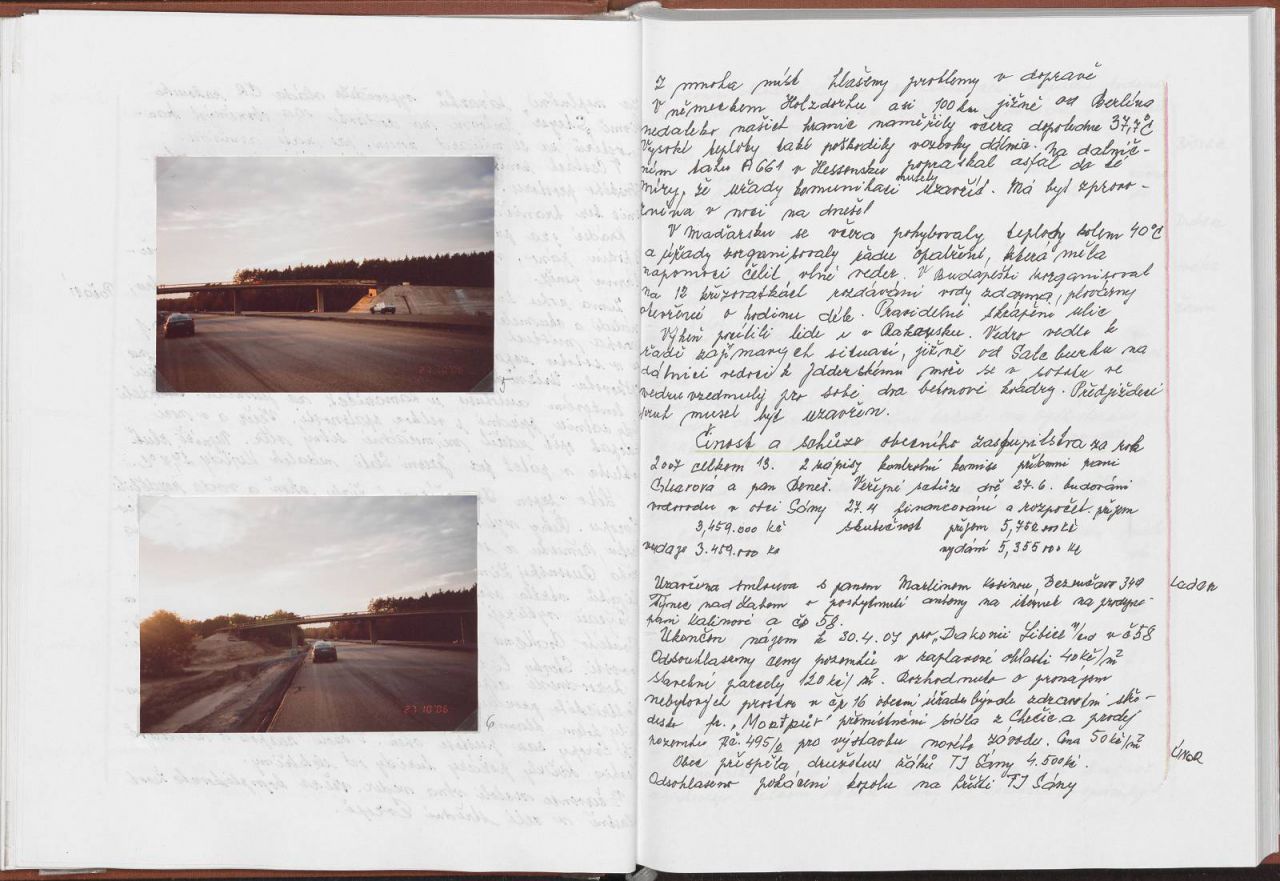 27 10 '06
5
27 10 '06
6
Z mnoha míst hlášeny problémy v dopravě
V německém Holzdorhu asi 100 km jižně od Berlína
nedaleko našich hranic naměřily včera dopoledne 37,7°C
Vysoké teploty také poškodily vozovky dálnic. Na dálnič-
ním tahu A 661 v Hessensku popraskal asfal do té
míry, že úřady komunikaci musely uzavříč. Má být zprovo-
zněna v noci na dnešel
V Maďarsku se včera pohybovaly teploty kolem 40°C
a úřady zorganisovaly řadu opatření, která měla
napomoci čelit vlně veder. V Budapešti zorganisoval
na 12 křižovatkách rozdávání vody zdarma, plovárny
otevřené o hodinu déle. Pravidelné skrápění ulic
Výheň pocítili lidé i v Rakousku. Vedro vedlo k
řadě zajímavých situací, jižně od Salcburku na
dálnici vedoucí k Jaderskému moři se v sobotu ve
vedru vzedmuly pro sobě dva betonové kvádry. Předjížděcí
pruh musel být uzavřen.
Činost a schůze obecního zastupilstva za rok
2007 celkem 13. 2 zápisy kontrolní komise přítomni paní
a pan Beneš. Veřejné schůze dvě 27.6. budování
vodovodu v obci Sány 27.4 financování a rozpočet. příjem
3,459.000 Kč skutečnost příjem 5,752 000 Kč
vydaje 3.459.000 Kč vydání 5,355 000 Kč
Uzavřena smlouva s panem Martinem Kosinou, Bezručova 349 Leden
Týnec nad Labem o poskytnutí antény na iternet na
paní Kalinové a čp 58.
Ukončen nájem k 30.4.07 pro „Drakonii Libice n/C" v č 58
Odsouhlaseny ceny pozemků v záplavové oblasti 40 Kč/m²
stavební parcely 120 Kč/m². Rozhodnuto o pronájem
nebytových prostor v čp 16 obecní úřad bývale zdravotní stře-
disko fr. „Montpur" přemístnění sídla z Chotic a prodej
pozemku Pč. 495/2 pro výstavbu nového závodu. Cena 50 Kč/m²
Obec přispěla družstvu žáků TJ Sány 4.500 Kč. Únor
Odsohlaseno pokácení topolu na hřišti TJ Sány